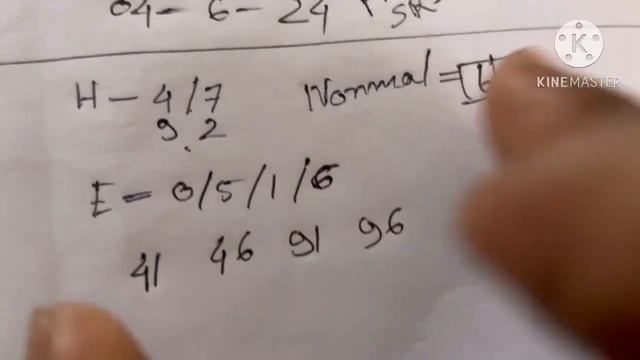 04-6-24
H - 4/7 Normal =
9.2
E = 0/5/1/6
41 46 91 96
KINEMASTER